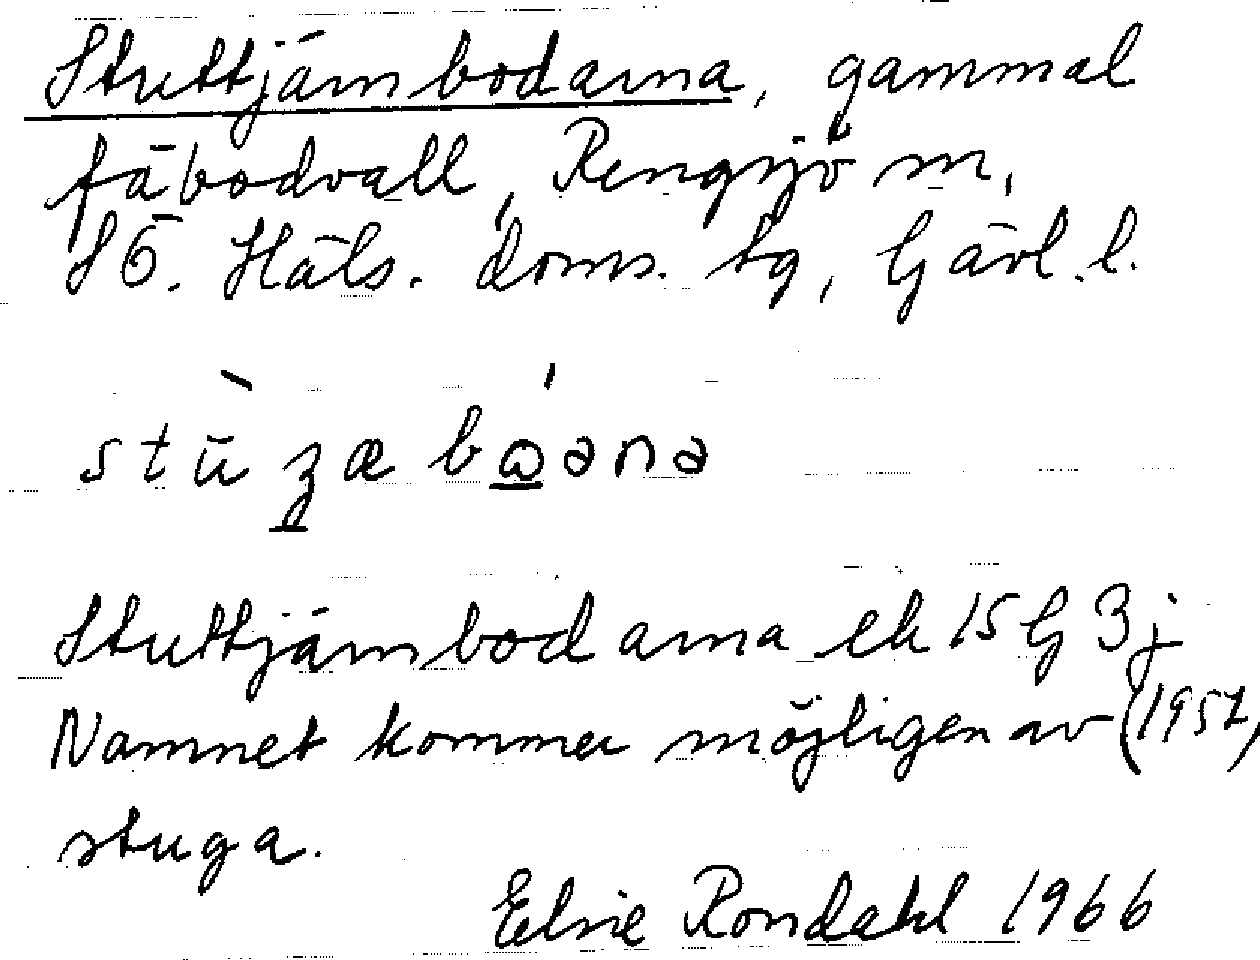 Stuttjärnbodarna, gammal
fäbodvall, Rengsjö sn,
SÖ. Häls. doms. tg, Gävl. l.
stūʒæbɷəna
Stuttjärnbodarna ek 15G 3j
Namnet kommer möjligen av (1957)
stuga.
Elsie Rondahl 1966